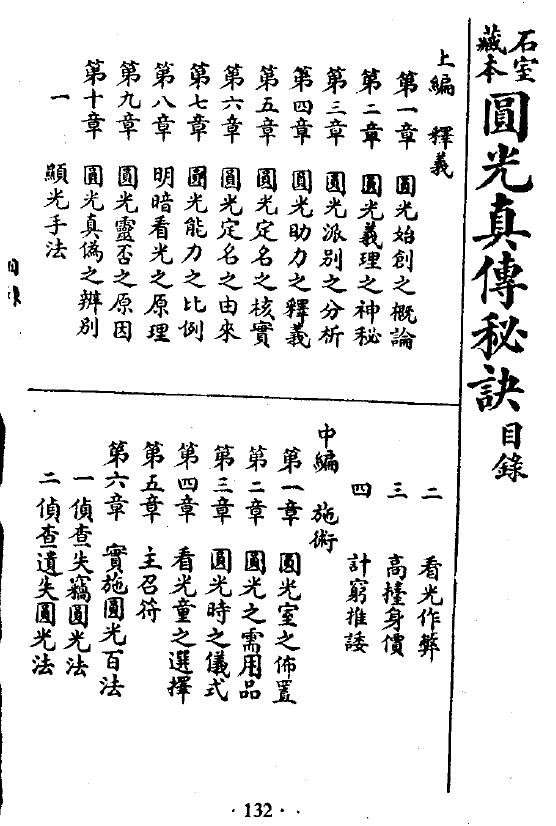 石室藏本 圓光真傳秘訣 目錄
上編 釋義
第一章 圓光始創之概論
第二章 圓光義理之神秘
第三章 圓光派別之分析
第四章 圓光助力之釋義
第五章 圓光定名之核實
第六章 圓光定名之由來
第七章 圓光能力之比例
第八章 明暗看光之原理
第九章 圓光靈否之原因
第十章 圓光真偽之辨別
一 顯光手法
二 看光作弊
三 高擡身價
四 計窮推諉
中編 施術
第一章 圓光室之佈置
第二章 圓光之需用品
第三章 圓光時之儀式
第四章 看光童之選擇
第五章 主召符
第六章 實施圓光百法
一 偵查失竊圓光法
二 偵查遺失圓光法
目錄
·132·